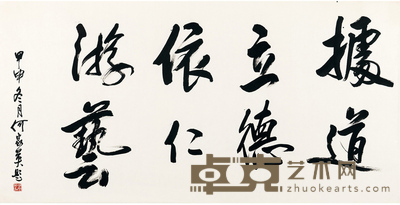 據道
立德
依仁
游藝
甲申冬月何家英题
卓克艺术网
zhuokearts.com